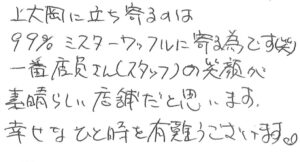 上大岡に立ち寄るのは
99% ミスターワッフルに寄る為です(笑)
一番店員さん(スタッフ)の笑顔が
素晴らしい店舗だと思います.
幸せなひと時を有難うございます♡